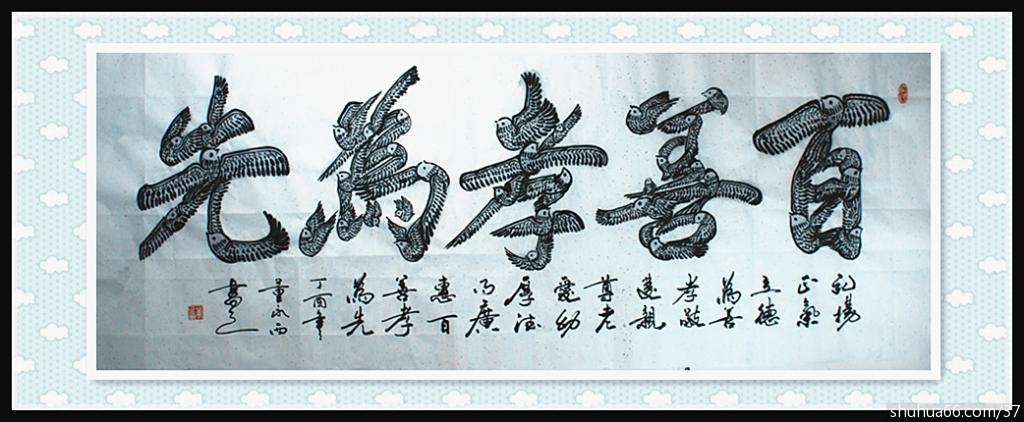 百善孝為先
揚
正氣
立德
為善
孝敬
親
尊老
愛幼
厚
廣
惠百
善孝
為先
丁酉年
書之
shuhua66.com/37